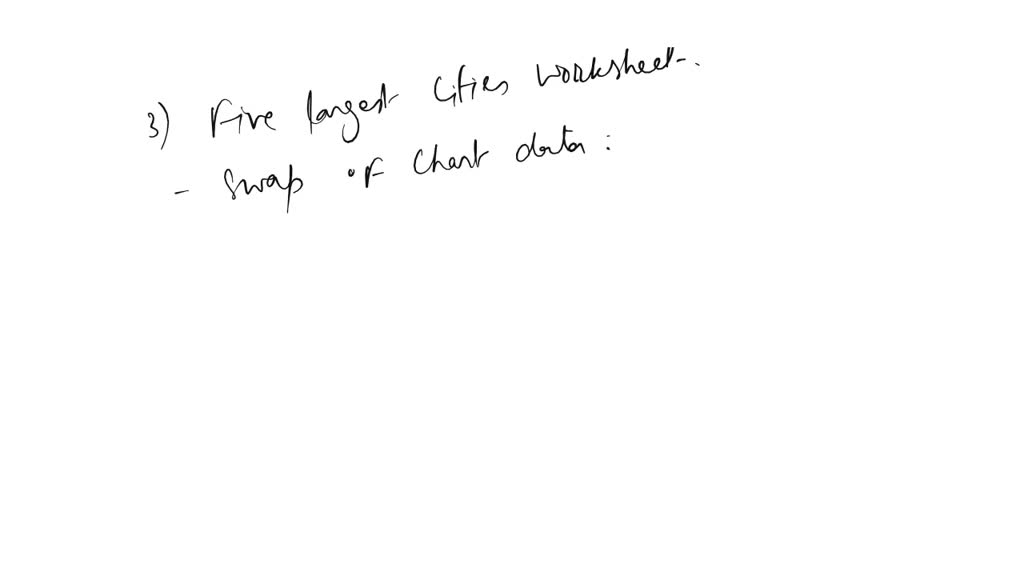 3) Five largest Cities worksheet.
- Swap of Chart data :